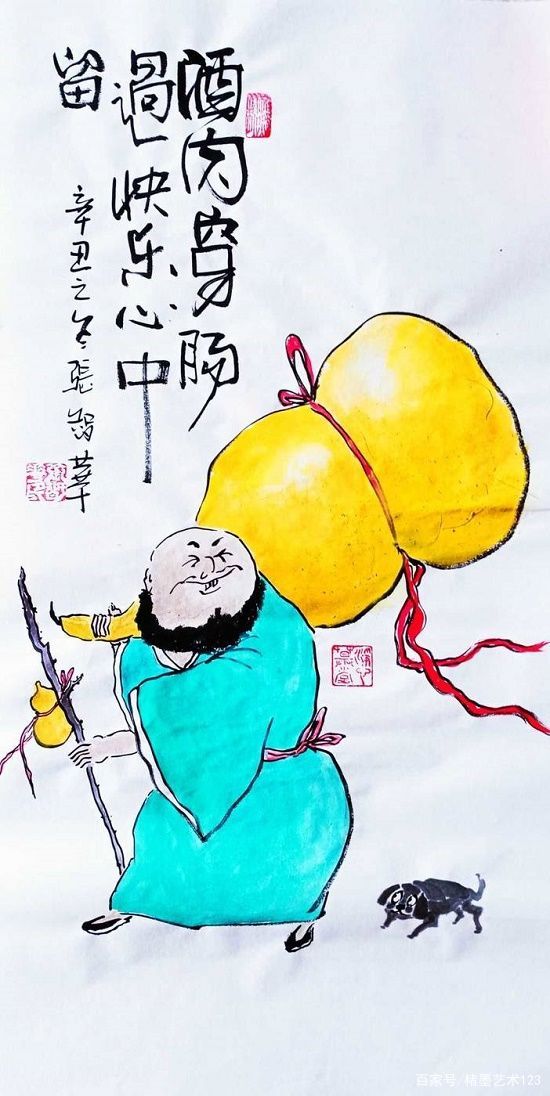 酒肉穿肠
過快乐心中
留
辛丑之冬張華
百家号/桔墨艺术123